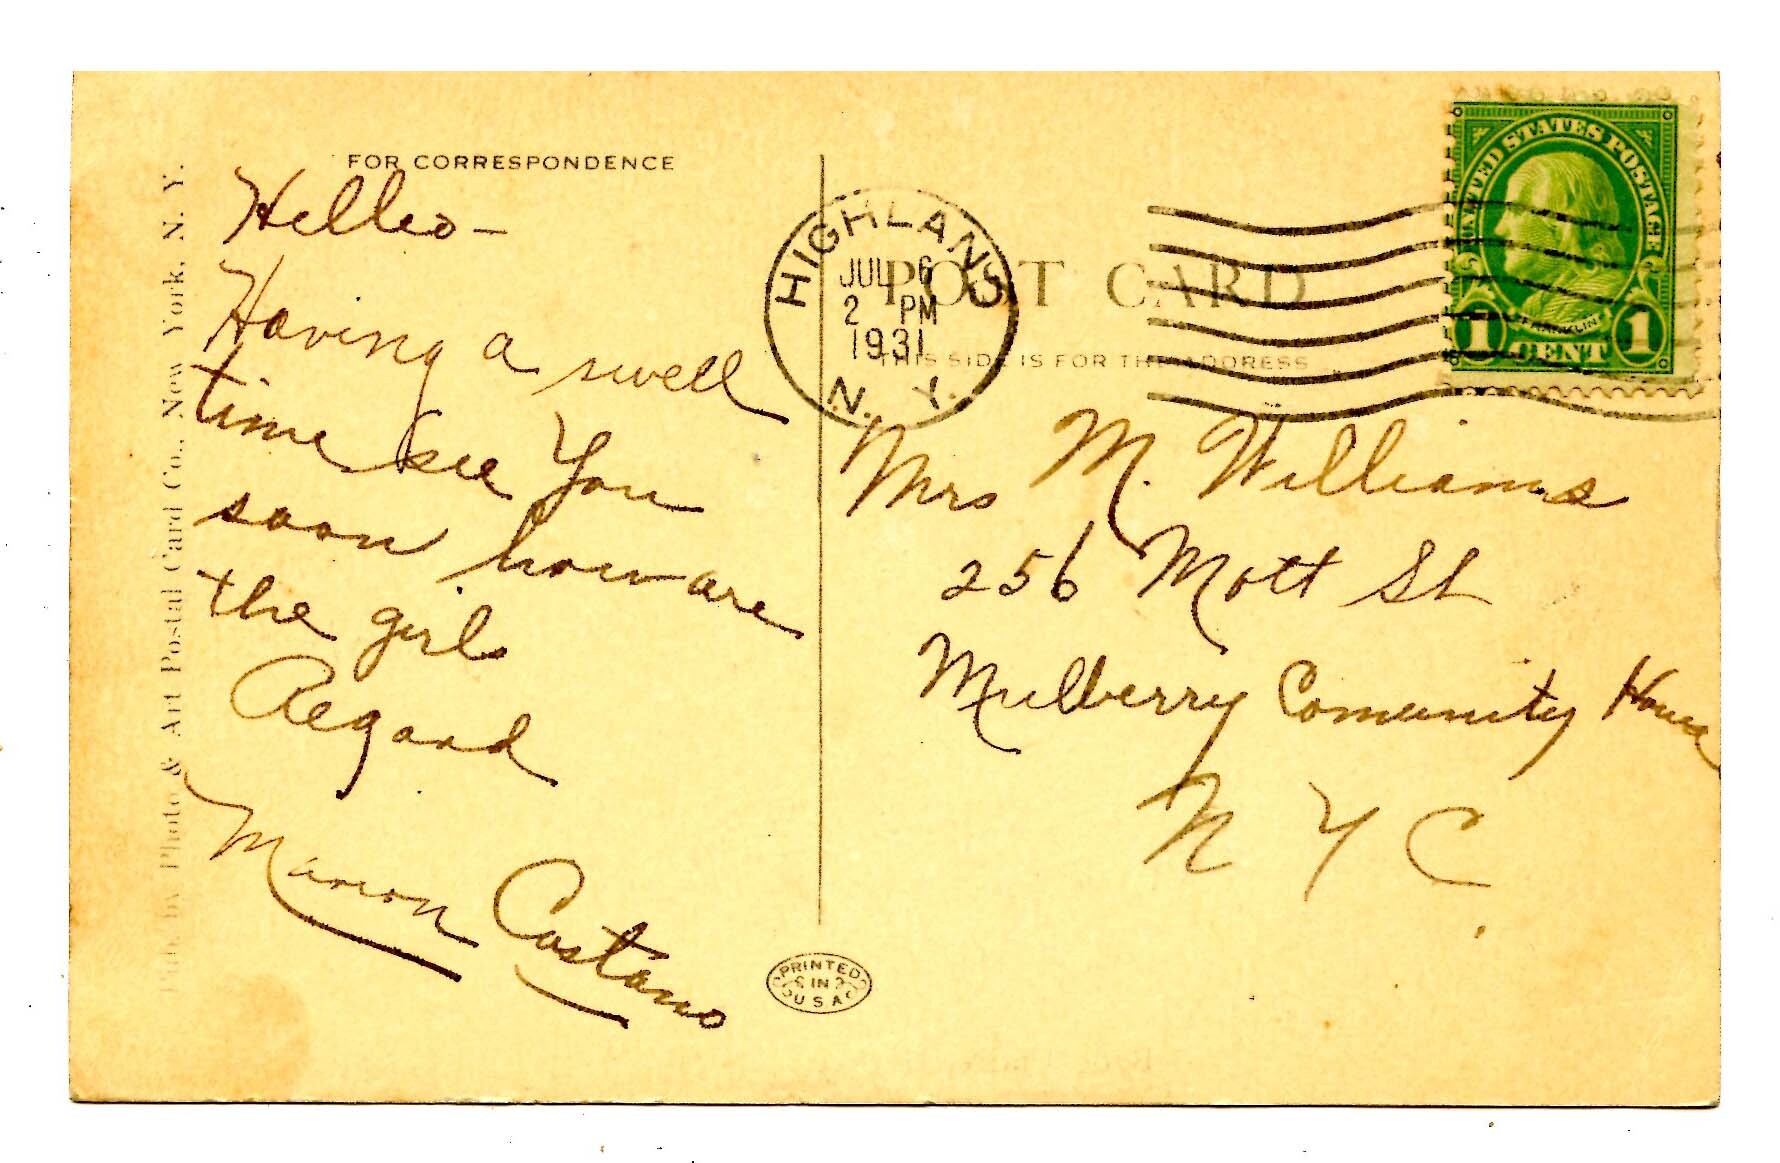 FOR CORRESPONDENCE
Helleo-
Having a swell
time see You
soon how are
the girls
Regard
Marion Costano
by Photo & Art Postal Card Co., New York, N. Y.
HIGHLAND
JUL 6
2 PM
1931
N. Y.
POST CARD
THIS SIDE IS FOR THE ADDRESS
UNITED STATES POSTAGE
FRANKLIN
1 CENT 1
Mrs M. Williams
256 Mott St
Mulberry Comunity House
N Y C
PRINTED
IN
U S A